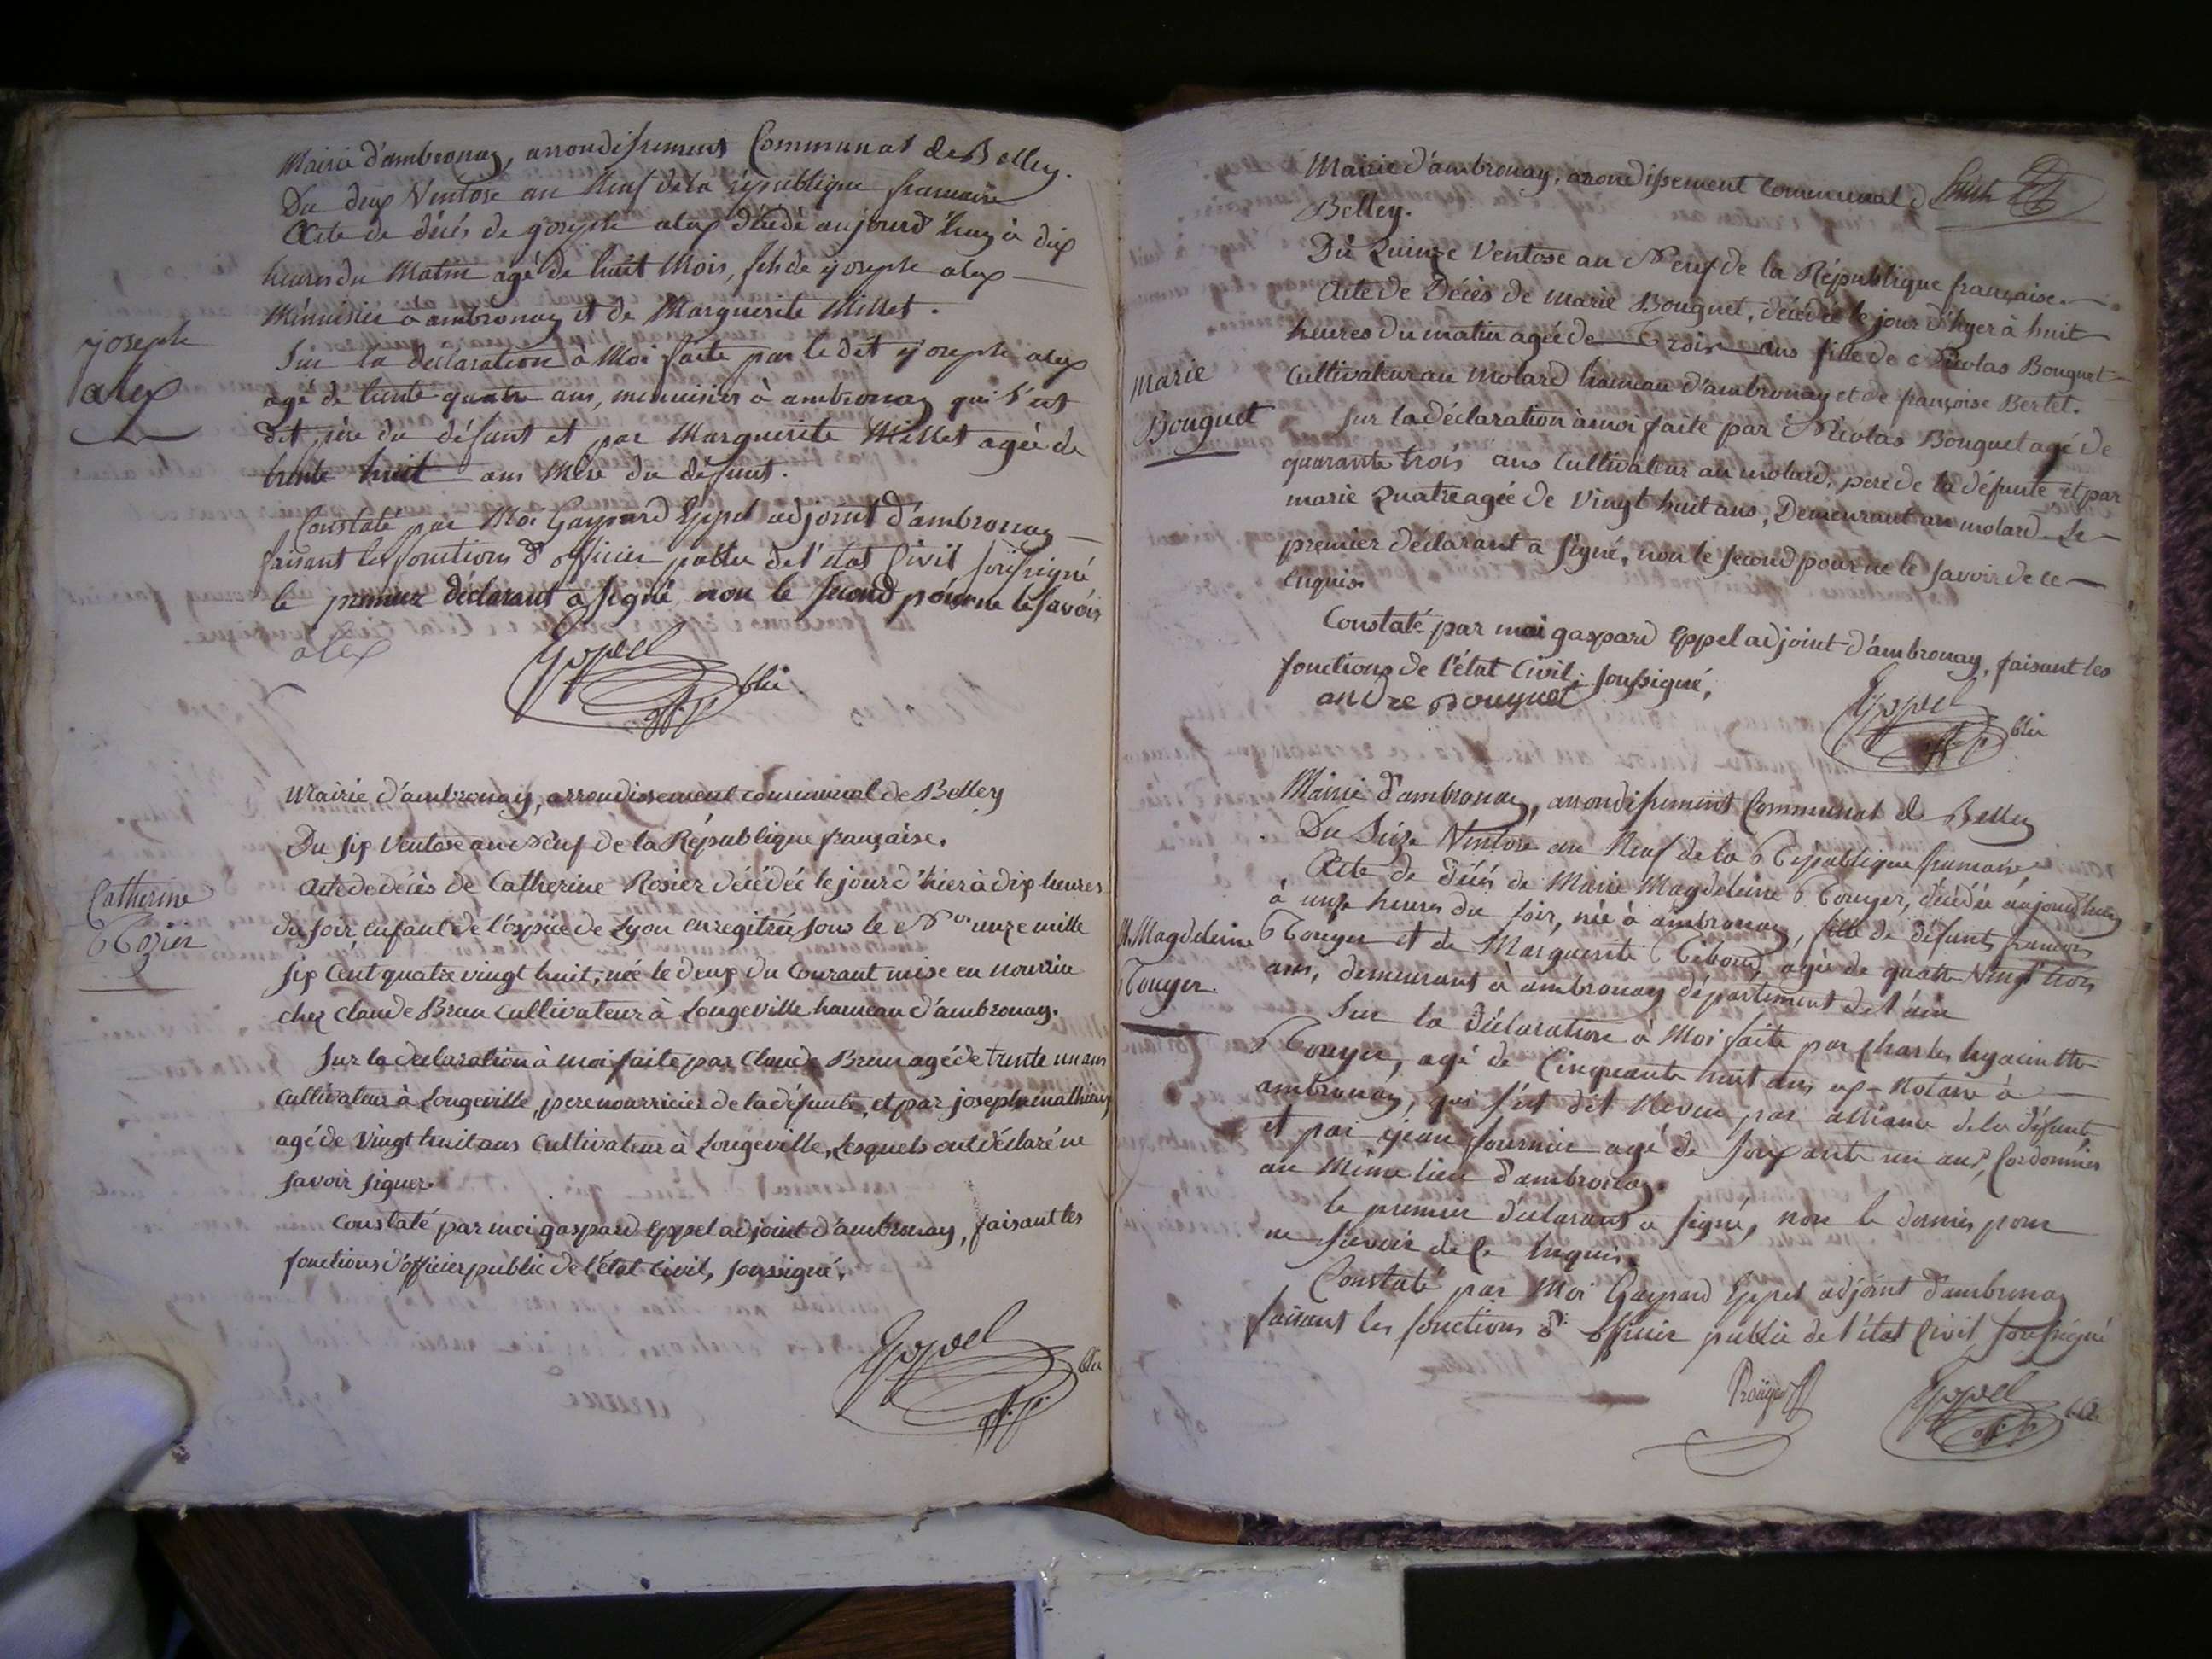 Mairie d'ambronay, arrondissement Communal de Belley.
Du deux Ventose an Neuf de la république francaise
Acte de décés de joseph alex décédé aujourd'huy à dix
heures du Matin agé de huit Mois, fils de joseph alex
Ménuisier a ambronay et de Marguerite Millet.
joseph
alex
Sur la declaration a Moi faite par le dit joseph alex
agé de trente quatre ans, menuisier à ambronay qui s'est
dit père du défunt et par Marguerite Millet agée de
trente huit ans Mere du défunt.
Constaté par Moi Gaspard Eppel adjoint d'ambronay
faisant les fonctions d'officier public de l'état Civil soussigné
le premier déclarant a signé non le second pour ne le savoir
alex
Eppel
Mairie d'ambronay, arrondissement communal de Belley
Du six Ventose an Neuf de la République française.
Catherine
Rozier
Acte de décès de Catherine Rosier décédée le jour d'hier à dix heures
du soir enfant de l'ospice de Lyon enregitrée sous le No onze mille
six Cent quatre vingt huit, née le deux du Courant mise en nourrice
chez claude Brun Cultivateur à Longeville hameau d'ambronay.
Sur la declaration à moi faite par Claude Brun agé de trente un ans
Cultivateur à Longeville, pere nourricier de la défunte, et par joseph mathieu
agé de Vingt huit ans Cultivateur à Longeville, Lesquels ont déclaré ne
savoir signer.
Constaté par moi gaspard Eppel adjoint d'ambronay, faisant les
fonctions d'officier public de l'état Civil, soussigné.
Eppel
Mairie d'ambronay, arrondissement Communal d
huit
Belley.
Du Quinze Ventose an Neuf de la République française.
Acte de Décès de Marie Bouquet, décédée le jour d'hyer à huit
heures du matin agée de Trois ans fille de Nicolas Bouquet
Marie
Bouquet
Cultivateur au Molard hameau d'ambronay et de françoise Bertet.
Sur la déclaration à moi faite par Nicolas Bouquet agé de
quarante trois ans Cultivateur au molard, pere de la défunte et par
marie Quatre agée de Vingt huit ans, Demeurant au molard. Le
premier déclarant a signé, non le second pour ne le savoir de ce
enquis.
Constaté par moi gaspard Eppel adjoint d'ambronay, faisant les
fonctions de l'état Civil, soussigné,
andre Bouquet
Eppel
Mairie d'ambronay, arrondissement Communal de Belley
Du Seize Ventose an Neuf de la République francaise
Acte de décés de Marie Magdeleine Rouyer, décédée aujourd'huy
à onze heures du soir, née à ambronay, fille de défunts francois
M. Magdeleine
Rouyer.
Rouyer et de Marguerite agée de quatre Vingt trois
ans, demeurant à ambronay département de l'ain
Sur la déclaration à Moi faite par Charles hyacinthe
Rouyer, agé de Cinquante huit ans ex-Notaire à
ambronay, qui s'est dit Neveu par alliance de la défunte
et par jean fournier agé de soixante un ans, Cordonnier
au Même lieu d'ambronay.
le premier déclarant a signé, non le dernier pour
ne savoir de ce Enquis.
Constaté par Moi Gaspard Eppel adjoint d'ambronay
faisant les fonctions d'officier public de l'état Civil soussigné
Eppel